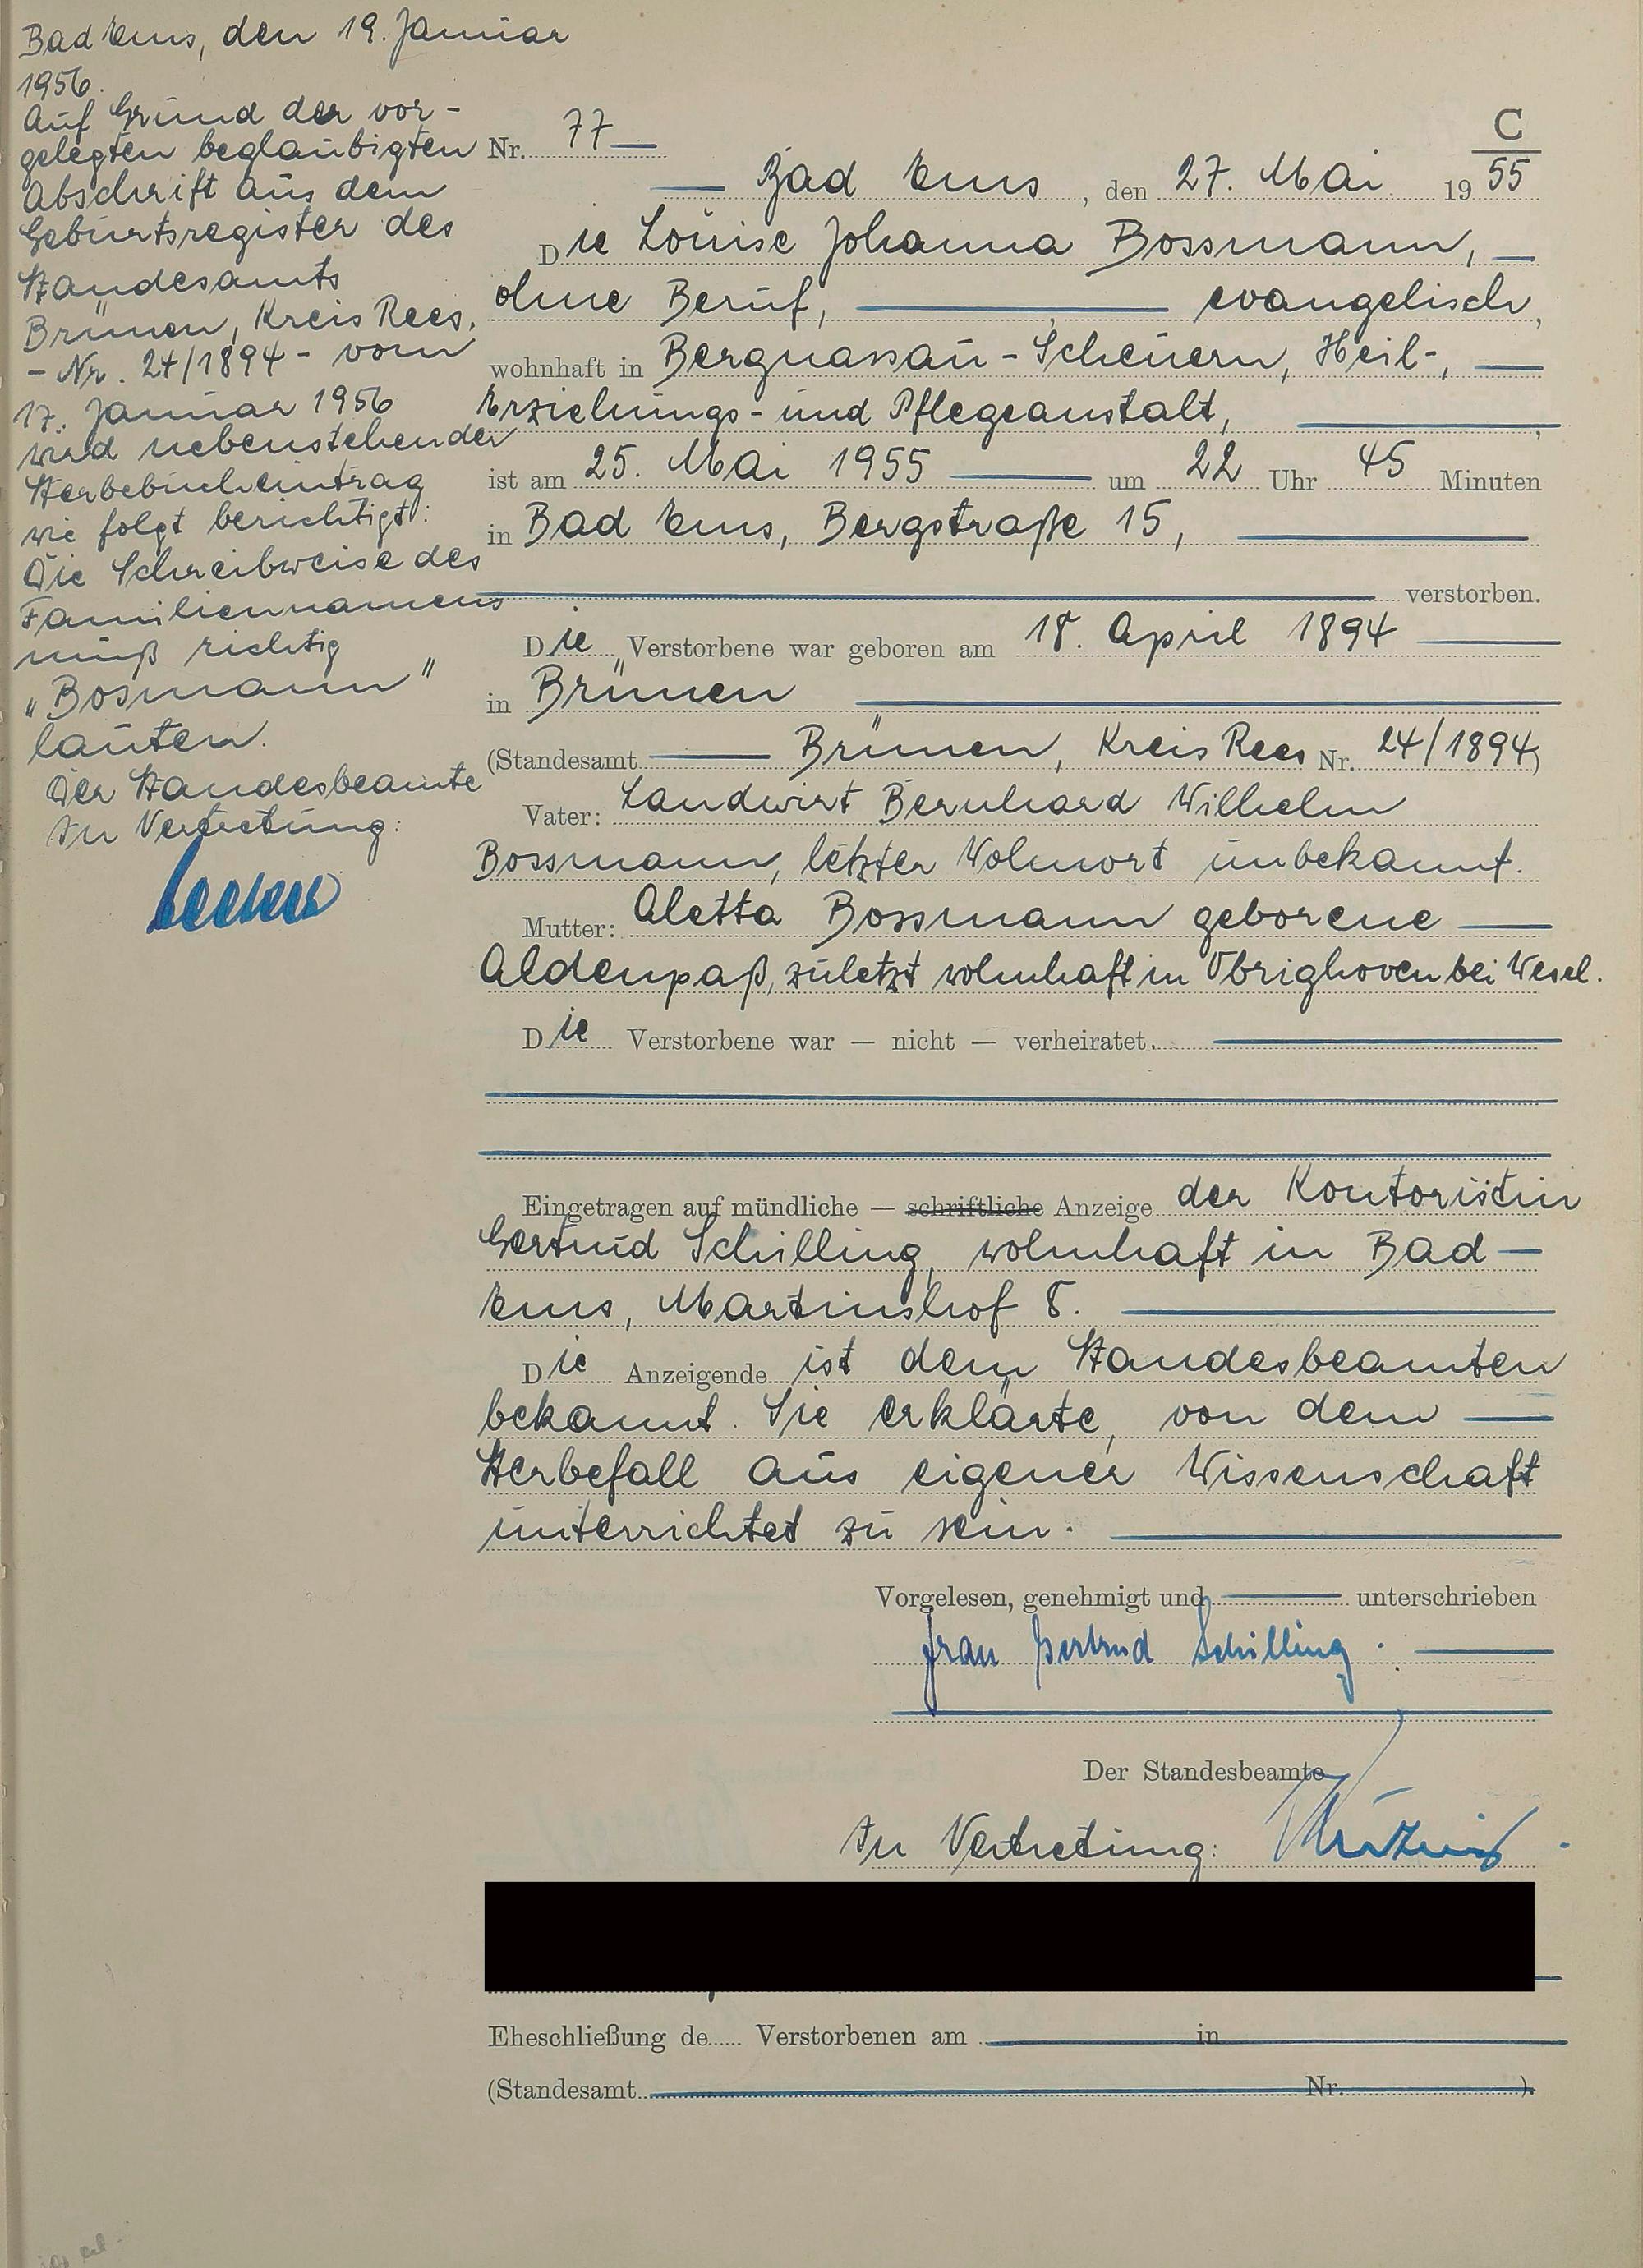 Bad Ems, den 19. Januar
1956.
Auf Grund der vor-
gelegten beglaubigten
Abschrift aus dem
Geburtsregister des
Standesamts
Brünen, Kreis Rees,
- Nr. 24/1894 - vom
17. Januar 1956
wird nebenstehender
Sterbebucheintrag
wie folgt berichtigt:
Die Schreibweise des
Familiennamens
muß richtig
„Bosmann"
lauten.
Der Standesbeamte
In Vertretung:
C
Nr. 77
Bad Ems, den 27. Mai 1955
Die Louise Johanna Bossmann,
ohne Beruf, evangelisch,
wohnhaft in Bergnassau-Scheuern, Heil-,
Erziehungs- und Pflegeanstalt,
ist am 25. Mai 1955 um 22 Uhr 45 Minuten
in Bad Ems, Bergstraße 15,
verstorben.
Die Verstorbene war geboren am 18. April 1894
in Brünen
(Standesamt Brünen, Kreis Rees Nr. 24/1894)
Vater: Landwirt Bernhard Wilhelm
Bossmann, letzter Wohnort unbekannt.
Mutter: Aletta Bossmann geborene
Aldenpaß, zuletzt wohnhaft in Obrighoven bei Wesel.
Die Verstorbene war — nicht — verheiratet.
Eingetragen auf mündliche — schriftliche Anzeige der Kontoristin
Gertrud Schilling, wohnhaft in Bad
Ems, Martinshof 8.
Die Anzeigende ist dem Standesbeamten
bekannt. Sie erklärte, von dem
Sterbefall aus eigener Wissenschaft
unterrichtet zu sein.
Vorgelesen, genehmigt und unterschrieben
Frau Gertrud Schilling.
Der Standesbeamte
In Vertretung:
Eheschließung de Verstorbenen am in
(Standesamt Nr. ).